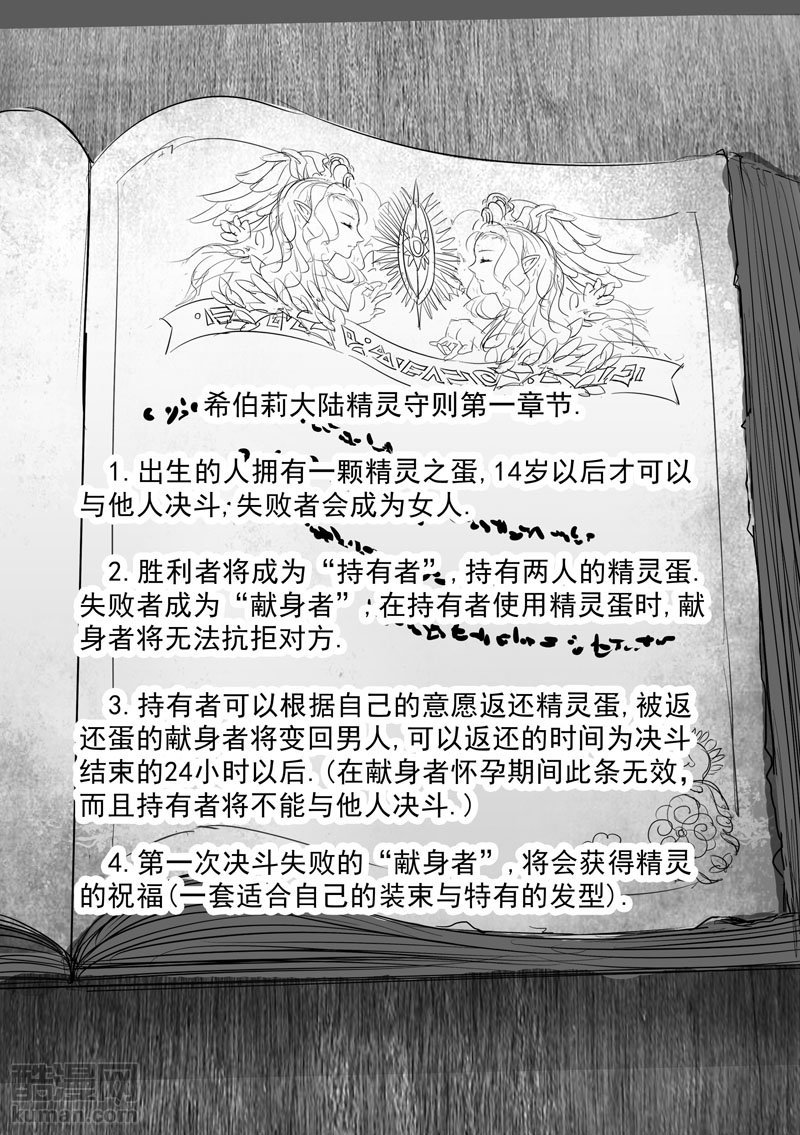 希伯莉大陆精灵守则第一章节.
1.出生的人拥有一颗精灵之蛋,14岁以后才可以
与他人决斗,失败者会成为女人.
2.胜利者将成为“持有者”,持有两人的精灵蛋.
失败者成为“献身者”,在持有者使用精灵蛋时,献
身者将无法抗拒对方.
3.持有者可以根据自己的意愿返还精灵蛋,被返
还蛋的献身者将变回男人,可以返还的时间为决斗
结束的24小时以后.(在献身者怀孕期间此条无效,
而且持有者将不能与他人决斗.)
4.第一次决斗失败的“献身者”,将会获得精灵
的祝福(一套适合自己的装束与特有的发型).
酷漫网
kuman.com